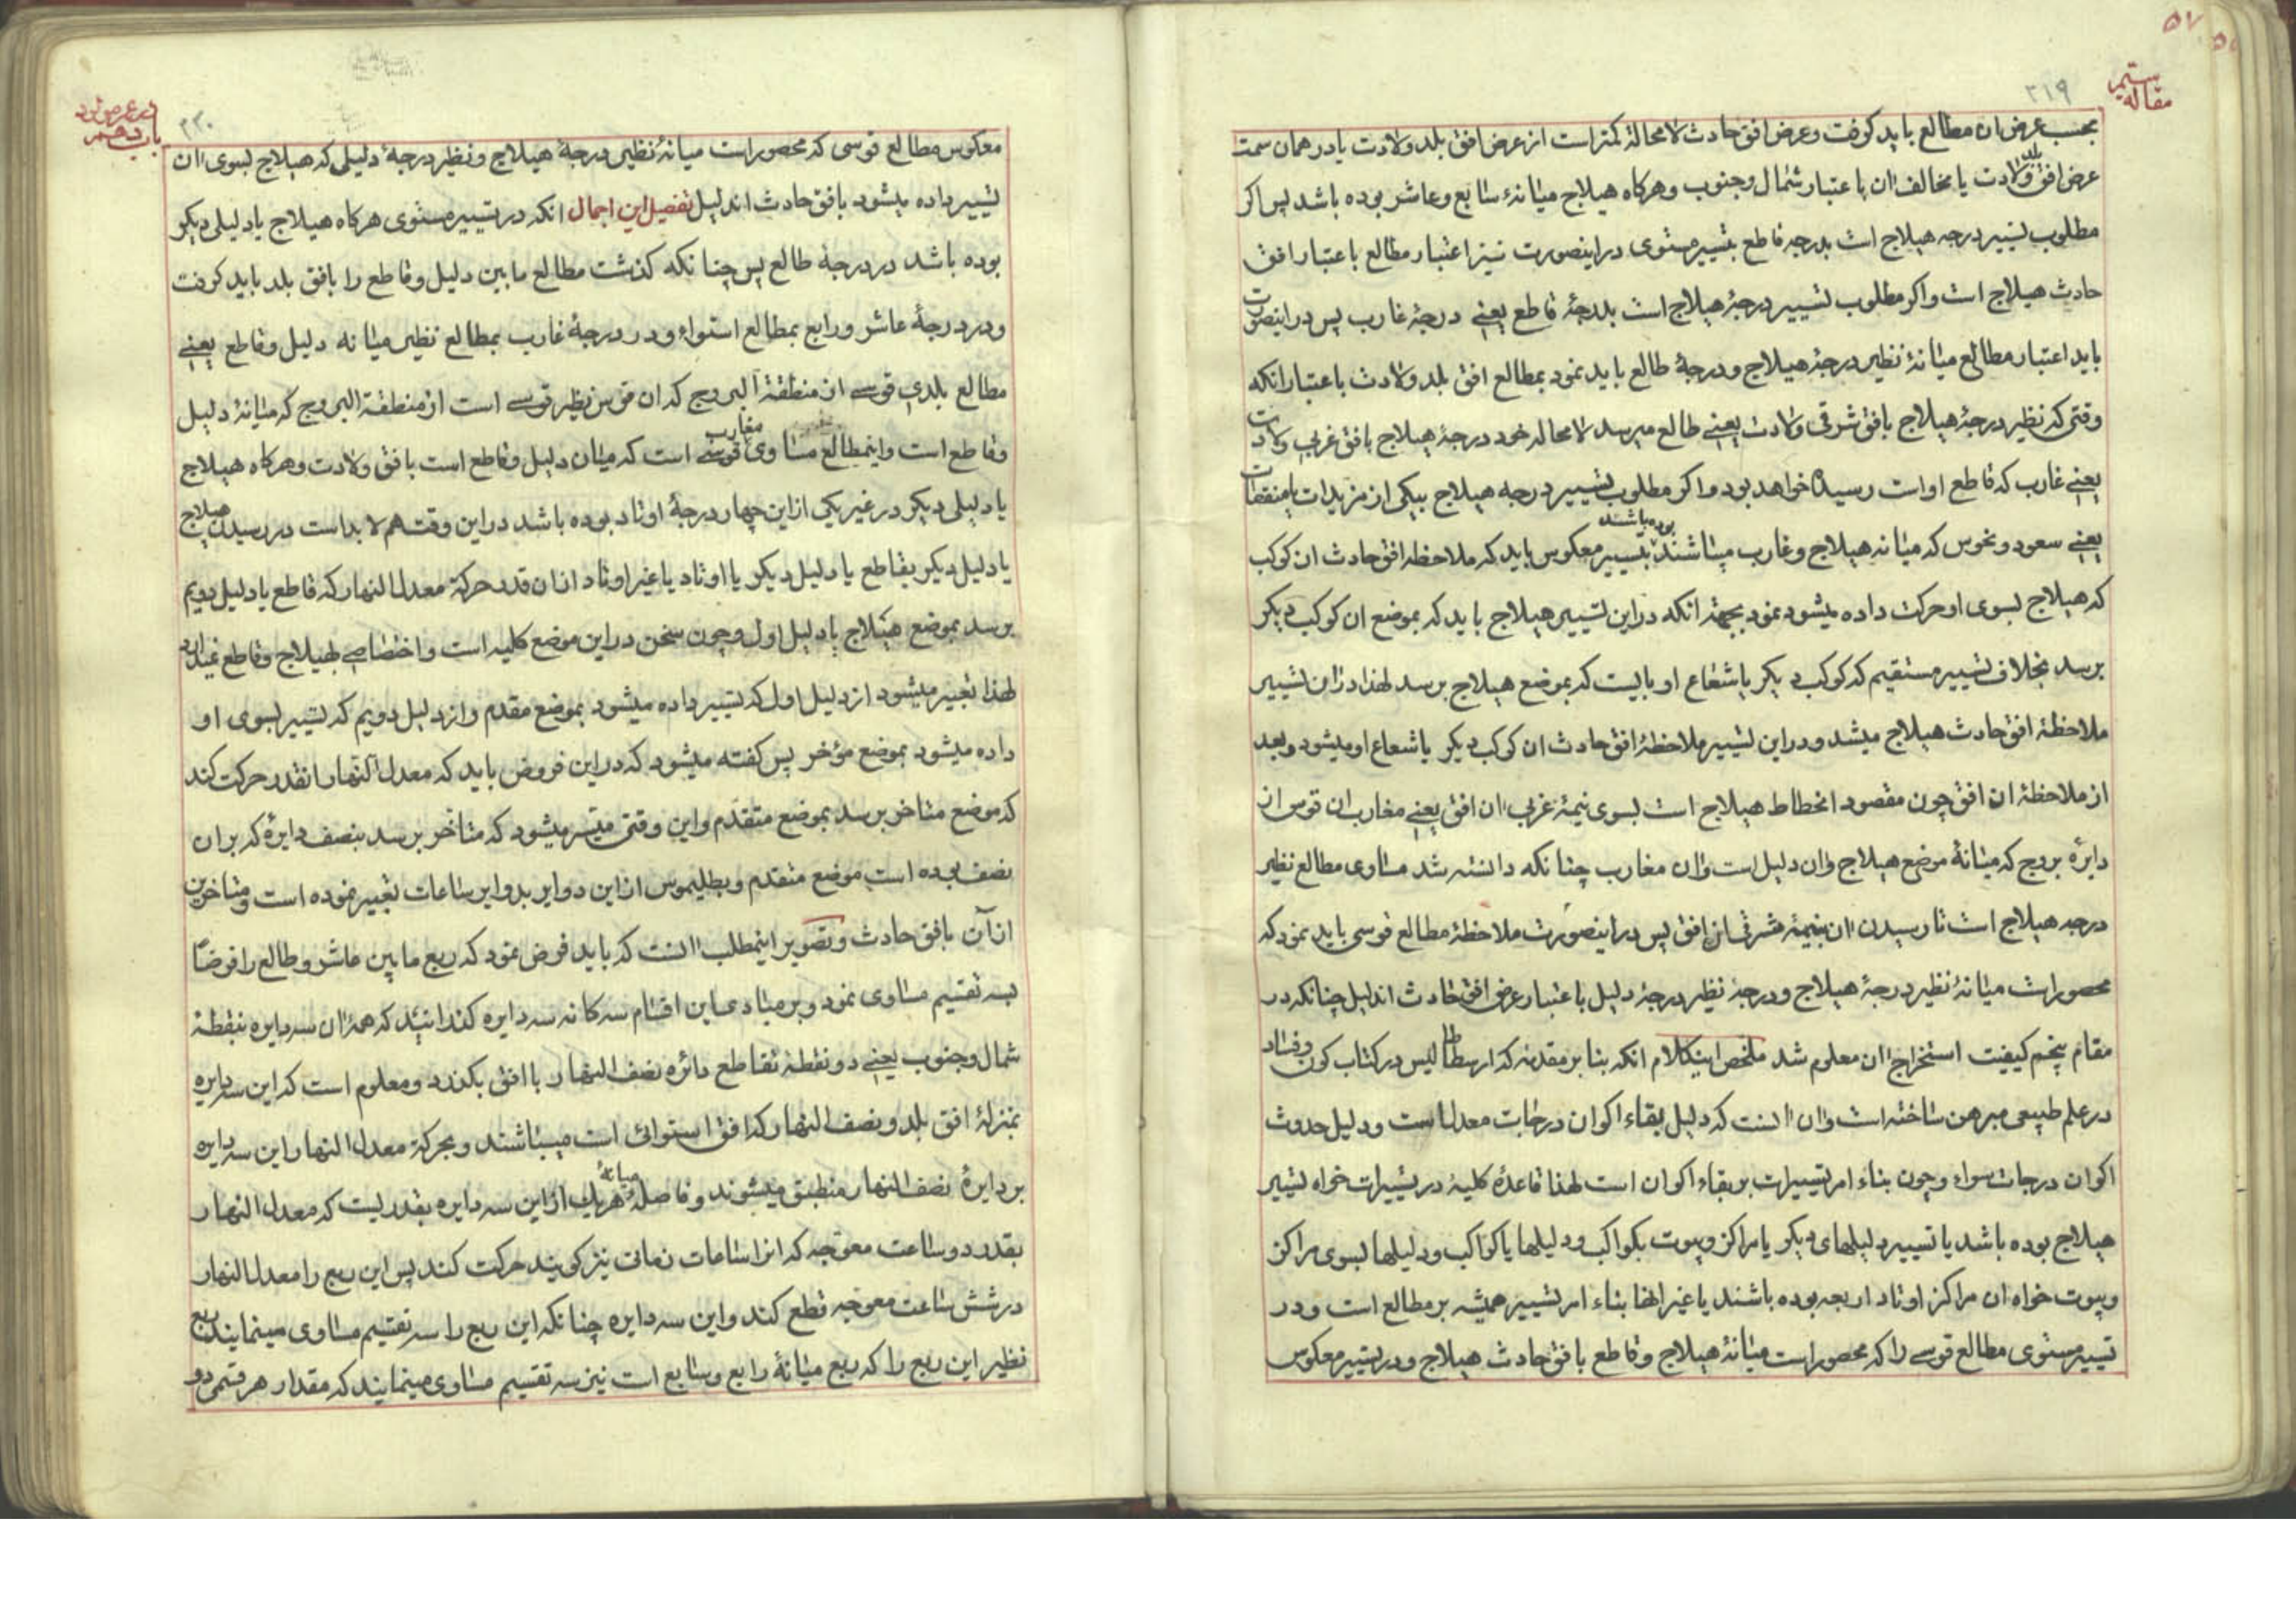 ۵۷
۲۱۹
مقاله سیم
بحسب عرض ان مطالع باید کرفت و عرض افق حادث لامحالة کمتر است از عرض افق بلد ولادت یا در همان سمت
عرض افق بلد ولادت یا مخالف ان باعتبار شمال و جنوب و هرکاه هیلاج میانهٔ سابع و عاشر بوده باشد پس اکر
مطلوب تسییر درجه هیلاج است بدرجه قاطع بتسییر مستوی در اینصورت نیز اعتبار مطالع باعتبار افق
حادث هیلاج است و اکر مطلوب تسییر درجهٔ هیلاج است بدرجهٔ قاطع یعنے درجهٔ غارب پس در اینصورت
باید اعتبار مطالع میانهٔ نظیر درجهٔ هیلاج و درجهٔ طالع باید نمود بمطالع افق بلد ولادت باعتبار انکه
وقتی که نظیر درجهٔ هیلاج بافق شرقی ولادت یعنے طالع میرسد لامحاله خود درجهٔ هیلاج بافق غربی ولادت
یعنے غارب که قاطع اواست رسیده خواهد بود و اکر مطلوب تسییر درجه هیلاج بیکی از مزیدات یا منقصات
یعنے سعود و نحوس که میانه هیلاج و غارب میباشند بوده باشند بتسییر معکوس باید که ملاحظه افق حادث ان کوکب
که هیلاج بسوی او حرکت داده میشود نمود بجهة انکه در این تسییر هیلاج باید که بموضع ان کوکب دیکر
برسد بخلاف تسییر مستقیم که کوکب دیکر یا شعاع او بایست که بموضع هیلاج برسد لهذا در ان تسییر
ملاحظهٔ افق حادث هیلاج میشد و در این تسییر ملاحظهٔ افق حادث ان کوکب دیکر یا شعاع او میشود و بعد
از ملاحظهٔ ان افق چون مقصود انحطاط هیلاج است بسوی نیمهٔ غربی ان افق یعنے مغارب ان قوس از
دایرهٔ بروج که میانهٔ موضع هیلاج وان دلیل است وان مغارب چنانکه دانسته شد مساوی مطالع نظیر
درجه هیلاج است تا رسیدن ان بنیمهٔ شرقی از افق پس در اینصورت ملاحظهٔ مطالع قوسی باید نمود که
محصور است میانهٔ نظیر درجهٔ هیلاج و درجهٔ نظیر درجهٔ دلیل باعتبار عرض افق حادث اندلیل چنانکه در
مقام پنجم کیفیت استخراج ان معلوم شد ملخص اینکلام انکه بنا بر مقدمه که ارسطاطالیس در کتاب کون و فساد
در علم طبیعی مبرهن ساخته است وان انست که دلیل بقاء اکوان درجات معدل است و دلیل حدوث
اکوان درجات سواء و چون بناء امر تسییرات بر بقاء اکوان است لهذا قاعدهٔ کلیهٔ در تسییرات خواه تسییر
هیلاج بوده باشد یا تسییر دلیلهای دیکر یا مراکز و بیوت بکواکب و دلیلها یا کواکب و دلیلها بسوی مراکز
و بیوت خواه ان مراکز اوتاد اربعه بوده باشند یا غیر انها بناء امر تسییر همیشه بر مطالع است و در
تسییر مستوی مطالع قوسے را که محصور است میانهٔ هیلاج و قاطع بافق حادث هیلاج و در تسییر معکوس
۲۲۰
باب دهم
معکوس مطالع قوسی که محصور است میانهٔ نظیر درجهٔ هیلاج و نظیر درجهٔ دلیلی که هیلاج بسوی ان
تسییر داده میشود بافق حادث اندلیل تفصیل این اجمال انکه در تسییر مستوی هرکاه هیلاج یا دلیلی دیکر
بوده باشد در درجهٔ طالع پس چنانکه کذشت مطالع ما بین دلیل و قاطع را بافق بلد باید کرفت
و در درجهٔ عاشر و رابع بمطالع استواء و در درجهٔ غارب بمطالع نظیر میانه دلیل و قاطع یعنے
مطالع بلدی قوسے از منطقة البروج که ان قوس نظیر قوسے است از منطقة البروج که میانهٔ دلیل
و قاطع است و اینمطالع مساوی مغارب قوسے است که میان دلیل و قاطع است بافق ولادت و هرکاه هیلاج
یا دلیلی دیکر در غیر یکی از این چهار درجهٔ اوتاد بوده باشد در این وقت هم لابد است در رسیدن هیلاج
یا دلیل دیکر بقاطع یا دلیل دیکر یا اوتاد یا غیر اوتاد از ان قدر حرکة معدل النهار که قاطع یا دلیل دویم
برسد بموضع هیلاج یا دلیل اول و چون سخن در این موضع کلیه است و اختصاصے بهیلاج و قاطع ندارد
لهذا تعبیر میشود از دلیل اول که تسییر داده میشود بموضع مقدم و از دلیل دویم که تسییر بسوی او
داده میشود بموضع مؤخر پس کفته میشود که در این فروض باید که معدل النهار انقدر حرکت کند
که موضع متاخر برسد بموضع متقدم و این وقتی میسر میشود که متاخر برسد بنصف دایرهٔ که بر ان
نصف بوده است موضع متقدم و بطلیموس از این دوایر بدوایر ساعات تعبیر نموده است و متاخرین
از آن بافق حادث و تصویر اینمطلب انست که باید فرض نمود که ربع ما بین عاشر و طالع را فرضا
بسه تقسیم مساوی نمود و بر مبادی این اقسام سه کانه سه دایره کذرانیند که همهٔ ان سه دایره بنقطهٔ
شمال و جنوب یعنے دو نقطهٔ تقاطع دائره نصف النهار با افق بکذرد و معلوم است که این سه دایره
بمنزلهٔ افق بلد و نصف النهار که افق استوائی است میباشند و بحرکة معدل النهار این سه دایره
بر دایرهٔ نصف النهار منطبق میشوند و فاصلهٔ میانهٔ هریک از این سه دایره بقدریست که معدل النهار
بقدر دو ساعت معوجه که انرا ساعات زمانی نیز کویند حرکت کند پس این ربع را معدل النهار
در شش ساعت معوجه قطع کند و این سه دایره چنانکه این ربع را سه تقسیم مساوی مینمایند ربع
نظیر این ربع را که ربع میانهٔ رابع و سابع است نیز سه تقسیم مساوی مینمایند که مقدار هر قسمی دو